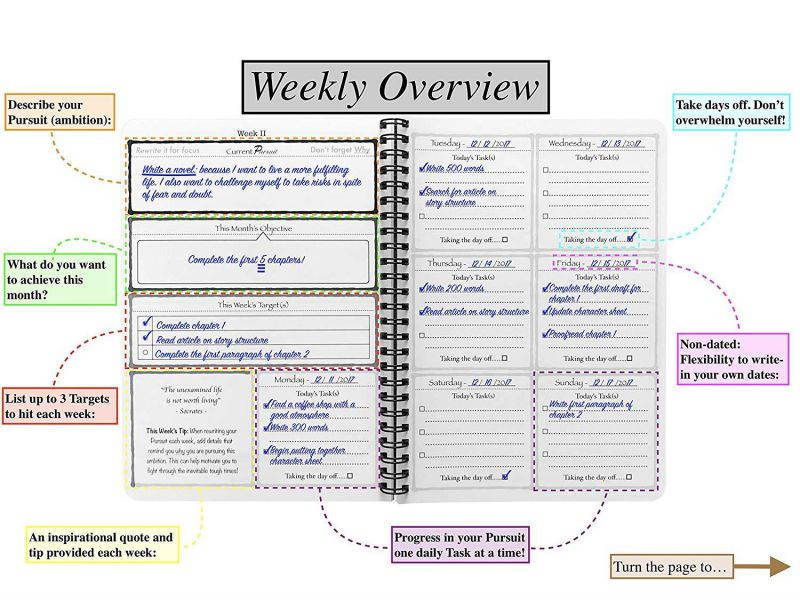 Weekly Overview
Describe your
Pursuit (ambition):
What do you want
to achieve this
month?
List up to 3 Targets
to hit each week:
An inspirational quote and
tip provided each week:
Week II
Rewrite it for focus
Current Pursuit
Don't forget Why
Write a novel: because I want to live a more fulfilling
life. I also want to challenge myself to take risks in spite
of fear and doubt.
This Month's Objective
Complete the first 5 chapters!
This Week's Target(s)
Complete chapter 1
Read article on story structure
Complete the first paragraph of chapter 2
"The unexamined life
is not worth living"
- Socrates -
This Week's Tip: When rewriting your
Pursuit each week, add details that
remind you why you are pursuing this
ambition. This can help motivate you to
fight through the inevitable tough times!
Monday - 12 / 11 / 2017
Today's Task(s)
Find a coffee shop with a
good atmosphere
Write 300 words
Begin putting together
character sheet
Taking the day off.....
Tuesday - 12 / 12 / 2017
Today's Task(s)
Write 500 words
Search for article on
story structure
Taking the day off.....
Wednesday - 12 / 13 / 2017
Today's Task(s)
Taking the day off.....
Thursday - 12 / 14 / 2017
Today's Task(s)
Write 200 words
Read article on story structure
Taking the day off.....
Friday - 12 / 15 / 2017
Today's Task(s)
Complete the first draft for
chapter 1
Update character sheet
Proofread chapter 1
Taking the day off.....
Saturday - 12 / 16 / 2017
Today's Task(s)
Taking the day off.....
Sunday - 12 / 17 / 2017
Today's Task(s)
Write first paragraph of
chapter 2
Taking the day off.....
Take days off. Don't
overwhelm yourself!
Non-dated:
Flexibility to write-
in your own dates:
Progress in your Pursuit
one daily Task at a time!
Turn the page to…